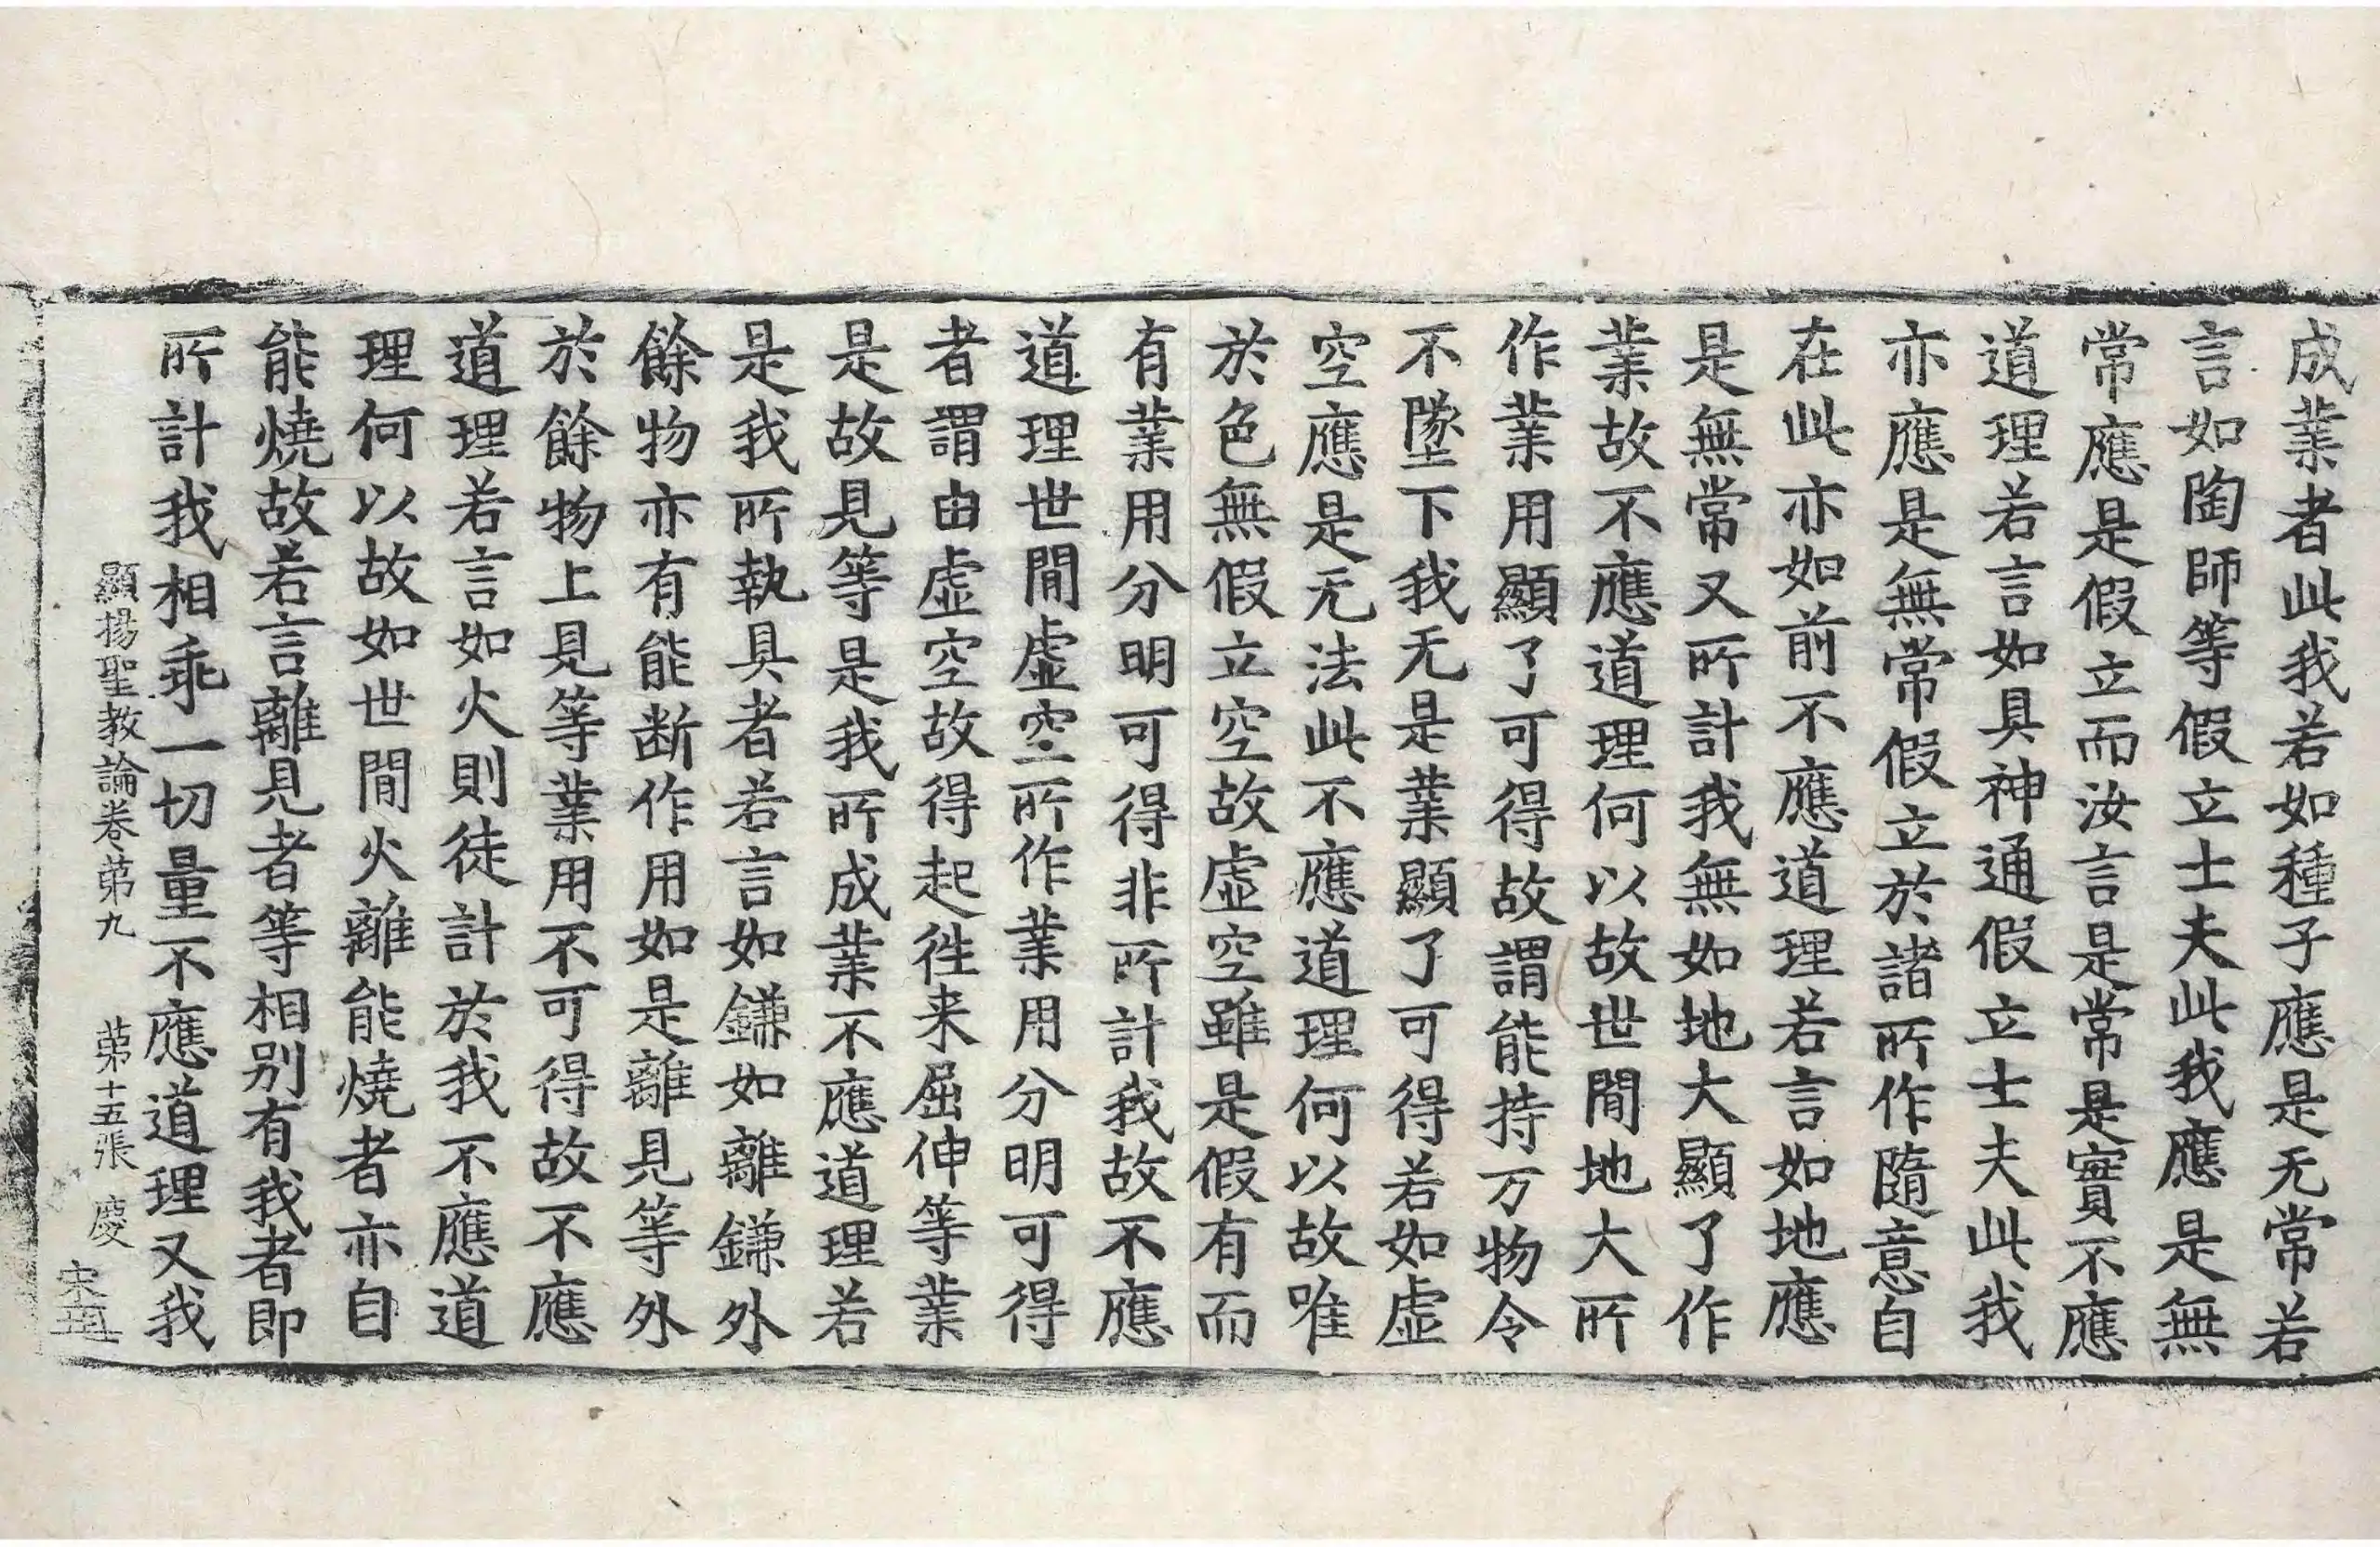 成業者此我若如種子應是无常若
言如陶師等假立士夫此我應是無
常應是假立而汝言是常是實不應
道理若言如具神通假立士夫此我
亦應是無常假立於諸所作隨意自
在此亦如前不應道理若言如地應
是無常又所計我無如地大顯了作
業故不應道理何以故世閒地大所
作業用顯了可得故謂能持万物令
不墜下我无是業顯了可得若如虛
空應是无法此不應道理何以故唯
於色無假立空故虛空雖是假有而
有業用分明可得非所計我故不應
道理世閒虛空所作業用分明可得
者謂由虛空故得起徃来屈伸等業
是故見等是我所成業不應道理若
是我所執具者若言如鎌如離鎌外
餘物亦有能断作用如是離見等外
於餘物上見等業用不可得故不應
道理若言如火則徒計於我不應道
理何以故如世閒火離能燒者亦自
能燒故若言離見者等相別有我者即
所計我相乖一切量不應道理又我
顯揚聖教論卷苐九 苐十五張 慶